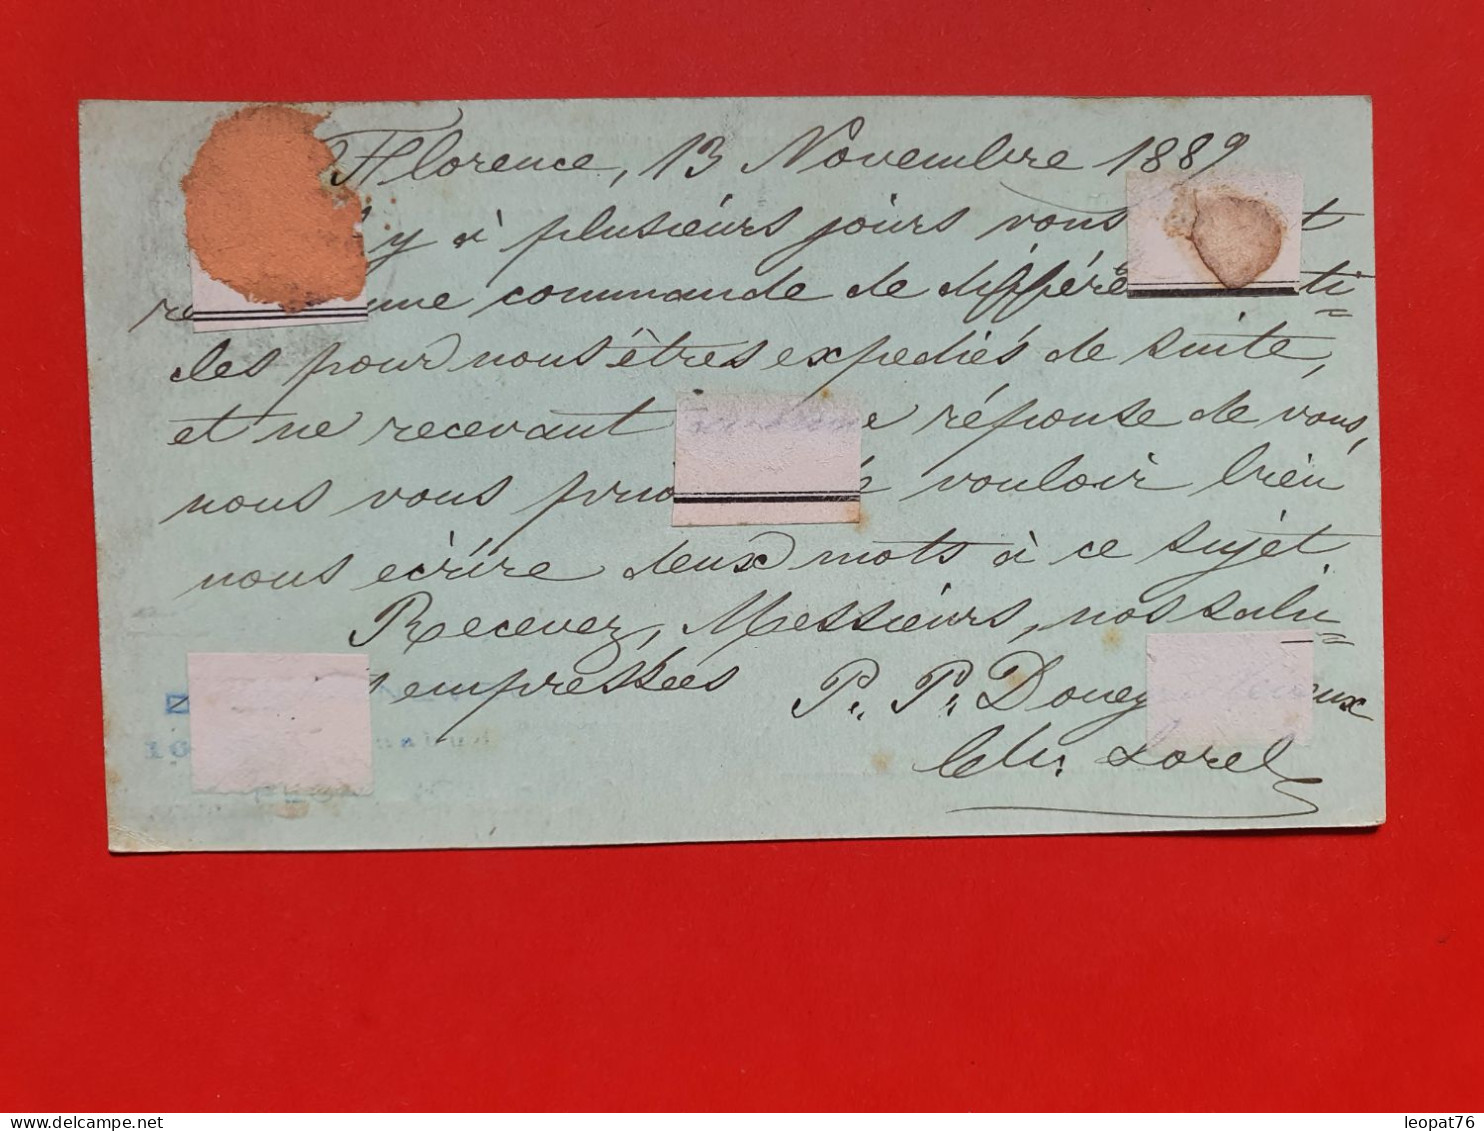 Florence, 13 Novembre 1889
y à plusieurs jours vous
une commande de différ ti=
cles pour nous êtres expediés de suite,
et ne recevant réponse de vous,
nous vous vouloir bien
nous écrire deux mots à ce sujet
Recevez, Messieurs, nos salu=
empressées
P. P. Doney
Ch. Lorel
leopat76